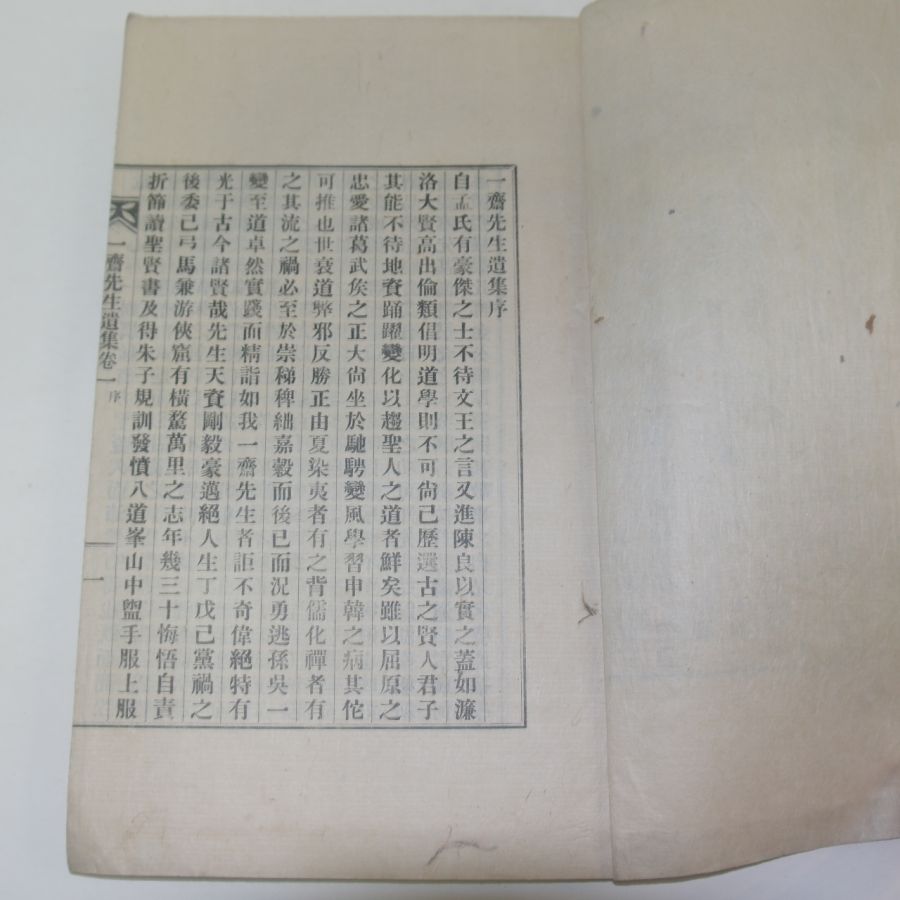 一齋先生遺集序
自孟氏有豪傑之士不待文王之言又進陳良以實之蓋如濂
洛大賢高出倫類倡明道學則不可尙已歷選古之賢人君子
其能不待地資踊躍變化以趨聖人之道者鮮矣雖以屈原之
忠愛諸葛武矦之正大尙坐於馳騁變風學習申韓之病其佗
可推也世衰道弊邪反勝正由夏染夷者有之背儒化禪者有
之其流之禍必至於崇稊稗絀嘉穀而後已而況勇逃孫吳一
變至道卓然實踐而精詣如我一齋先生者詎不奇偉絕特有
光于古今諸賢哉先生天資剛毅豪邁絕人生丁戊己黨禍之
後委己弓馬兼游俠窟有橫騖萬里之志年幾三十悔悟自責
折節讀聖賢書及得朱子規訓發憤入道峯山中盥手服上服
一齋先生遺集卷一
序
一